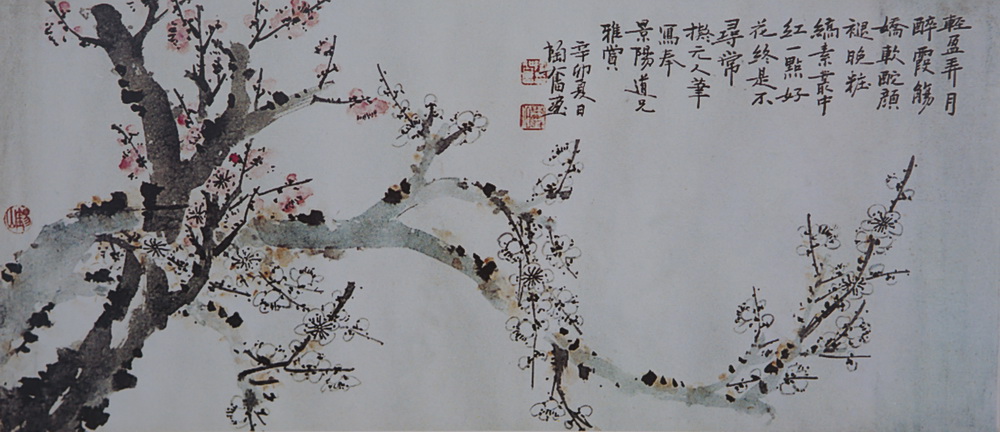 輕盈弄月
醉霞觴
嬌軟酡顏
褪晚粧
縞素叢中
紅一點好
花終是不
尋常
撫元人筆
寫奉
景陽道兄
雅賞
辛卯夏日